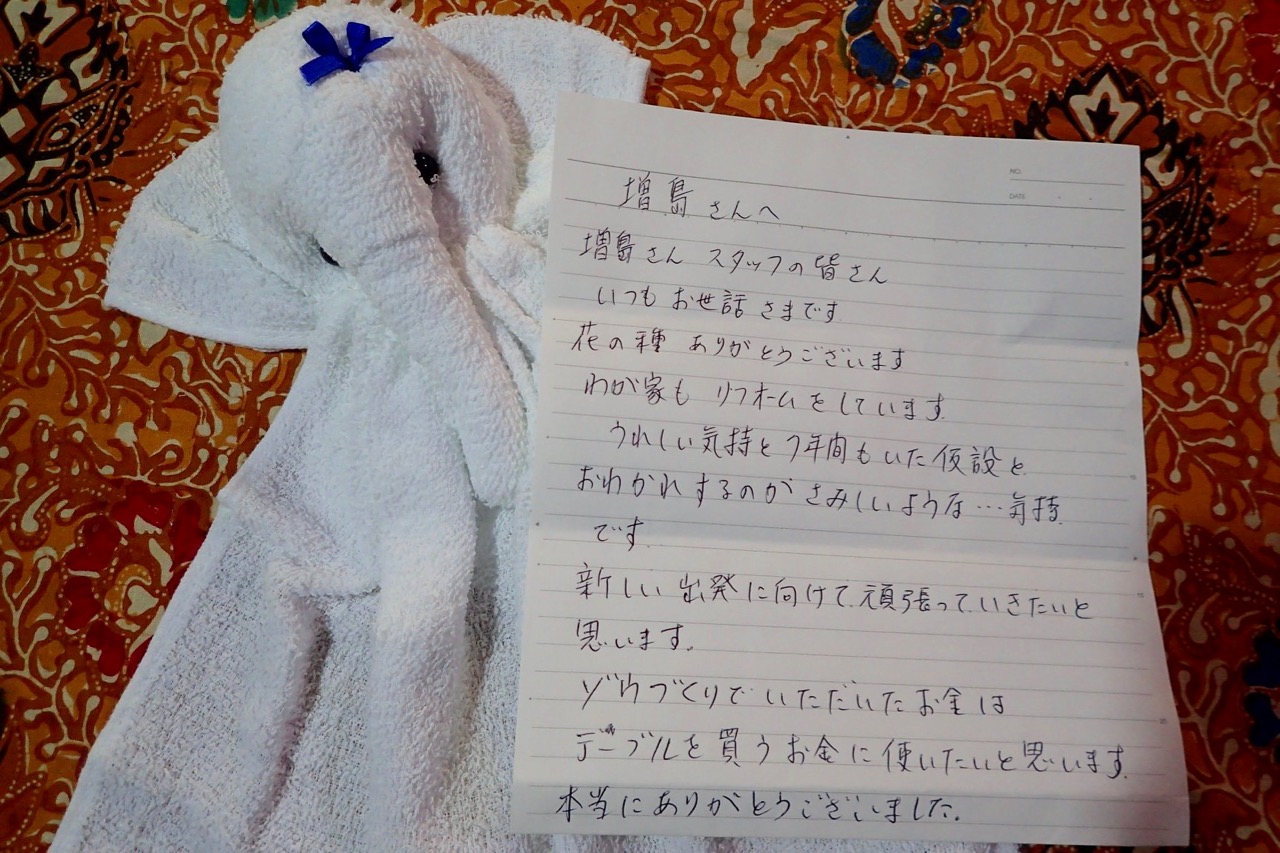 NO.
DATE
増島さんへ
増島さん スタッフの皆さん
いつも お世話さまです
花の種 ありがとうございます
わが家も リフォームをしています
うれしい気持と 7年間もいた仮設と
おわかれするのが さみしいような…気持
です
新しい出発に向けて 頑張っていきたいと
思います。
ゾウづくりで いただいたお金は
テーブルを買うお金に使いたいと思います
本当にありがとうございました。